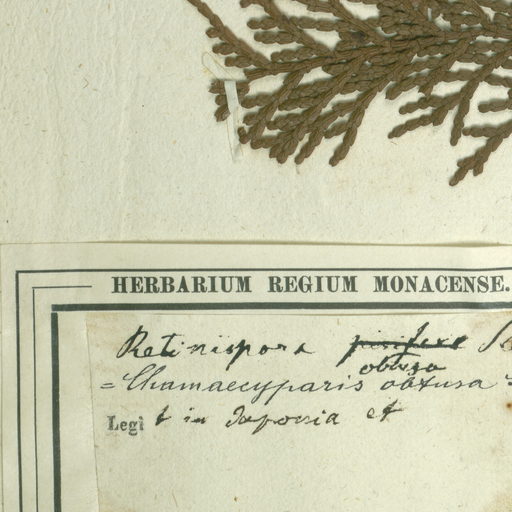 HERBARIUM REGIUM MONACENSE.
Retinispora pisifera
obtusa
= Chamaecyparis obtusa =
Legit in Japonia et